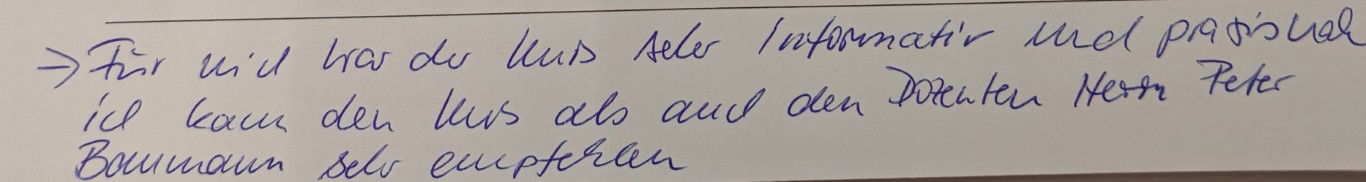 → Für mich war der Kurs sehr Informativ und praxisnah
ich kann den Kurs als auch den Dozenten Herrn Peter
Baumann sehr empfehlen